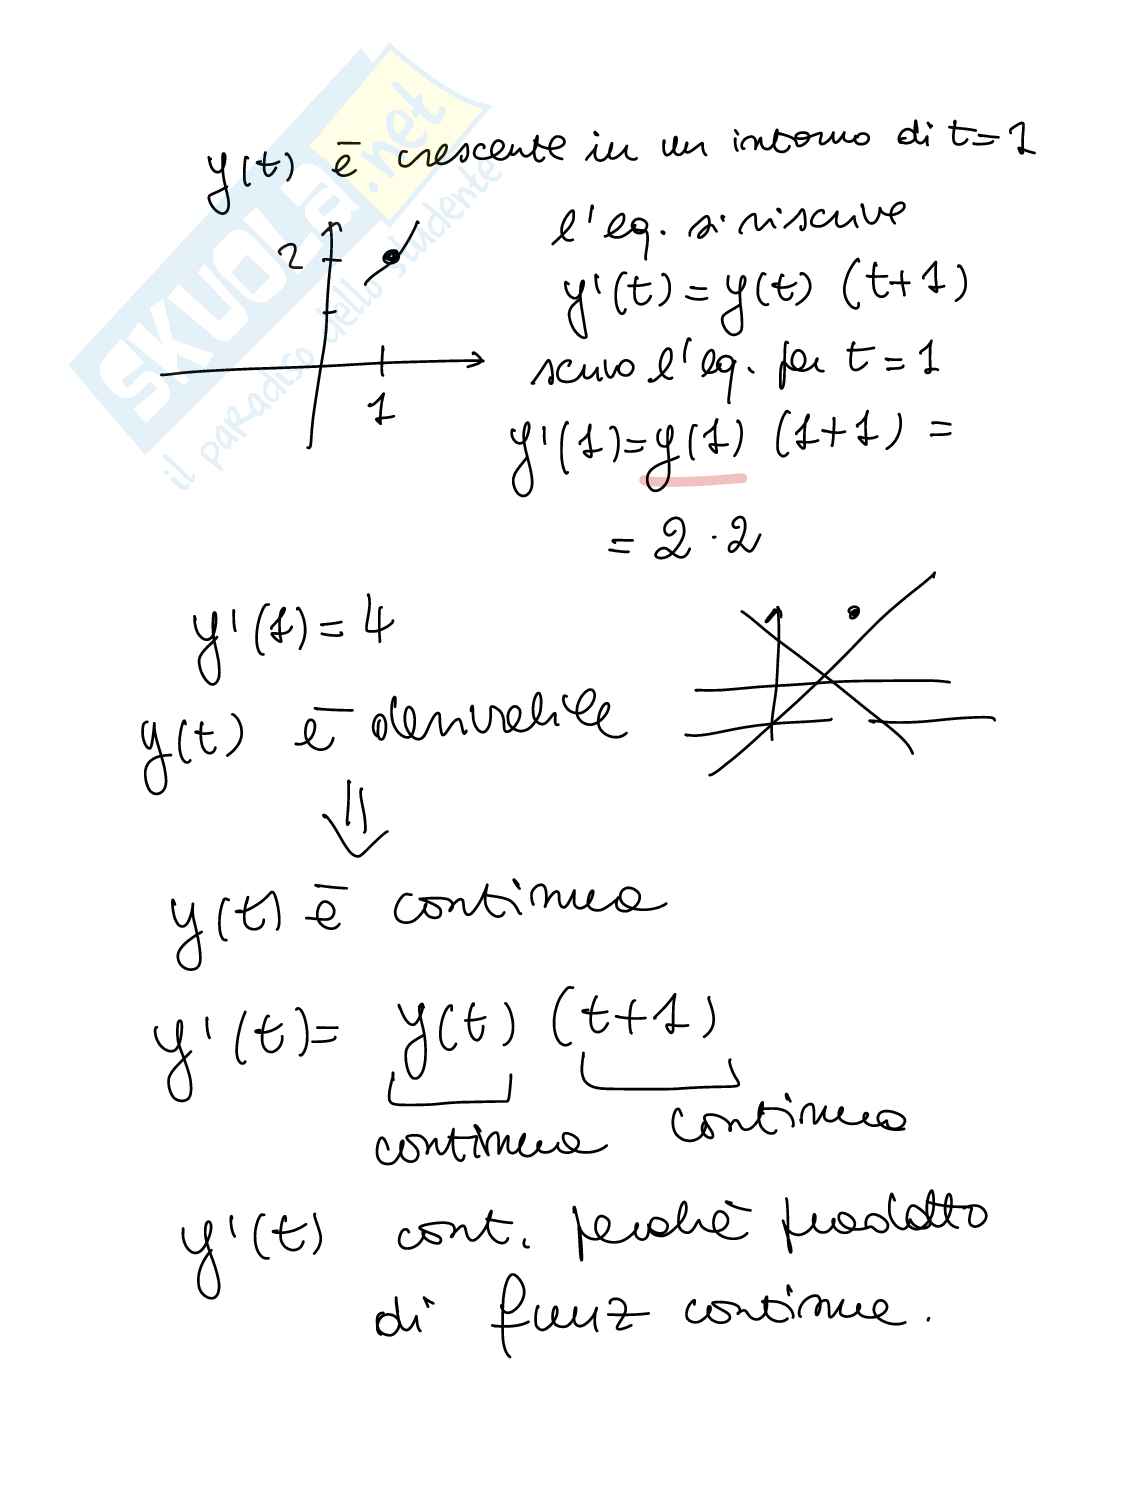 SKUOLA.net
il paradiso dello studente
y(t) è crescente in un intorno di t=1
l'eq. si riscrive
2
y'(t) = y(t) (t+1)
scrivo l'eq. per t=1
1
y'(1)=y(1) (1+1) =
= 2 · 2
y'(1)=4
y(t) è derivabile
⇓
y(t) è continua
y'(t)= y(t) (t+1)
continua continua
y'(t) cont. perchè prodotto
di funz continue.